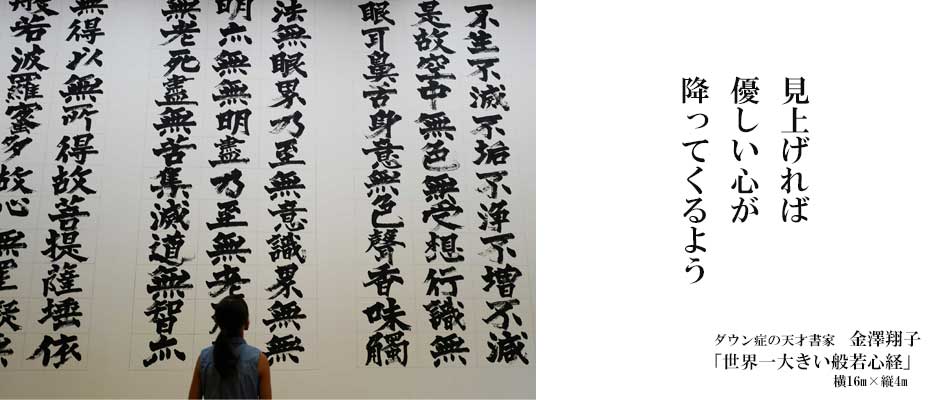 見上げれば
優しい心が
降ってくるよう
ダウン症の天才書家 金澤翔子
「世界一大きい般若心経」
横16m×縦4m
不生不滅不垢不浄不増不減
是故空中無色無受想行識無
眼耳鼻舌身意無色聲香味觸
法無眼界乃至無意識界無無
明亦無無明盡乃至無老
無老死盡無苦集滅道無智亦
無得以無所得故菩提薩埵依
般若波羅蜜多故心無罣礙無